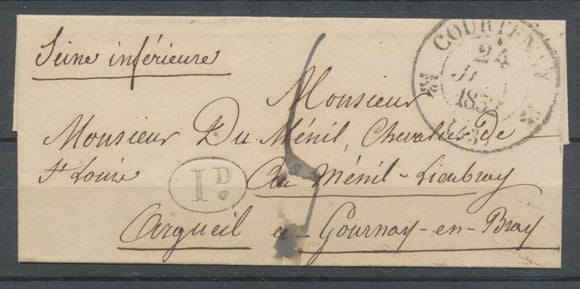 Seine inférieure
COURTENAY
24
1837
(43)
Monsieur
Monsieur Du Ménil, Chevalier de
St Louis
1D.
Au Ménil-Lieubray
Argueil à Gournay-en-Bray
5